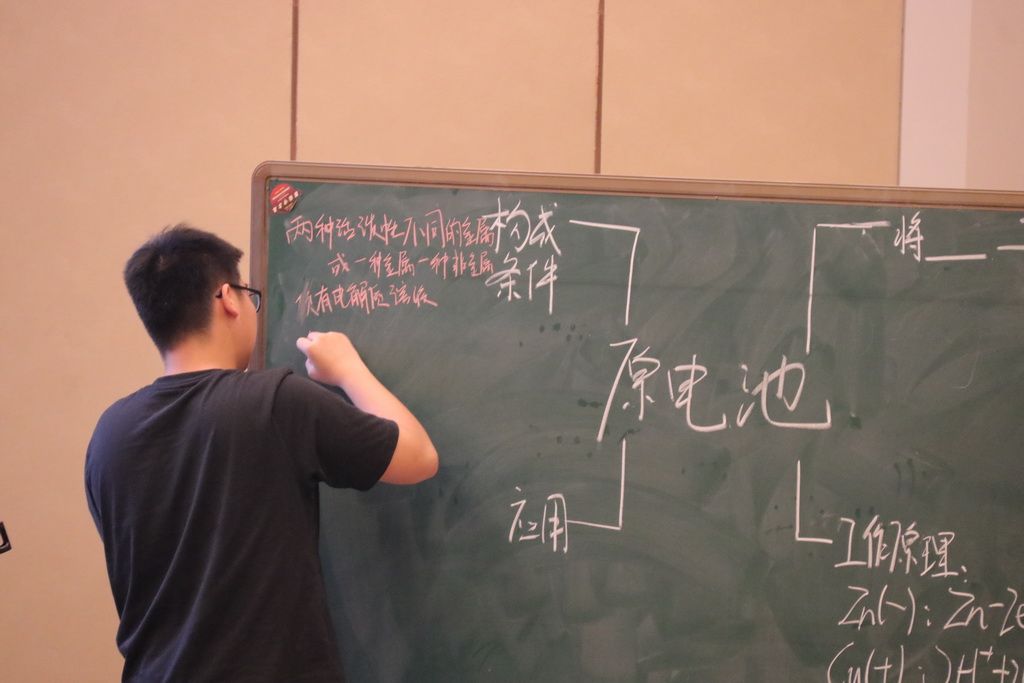 两种活泼性不同的金属
或一种金属一种非金属
有电解质溶液
构成
条件
将
原电池
应用
工作原理:
Zn(-): Zn-2e
Cu(+): 2H⁺+2